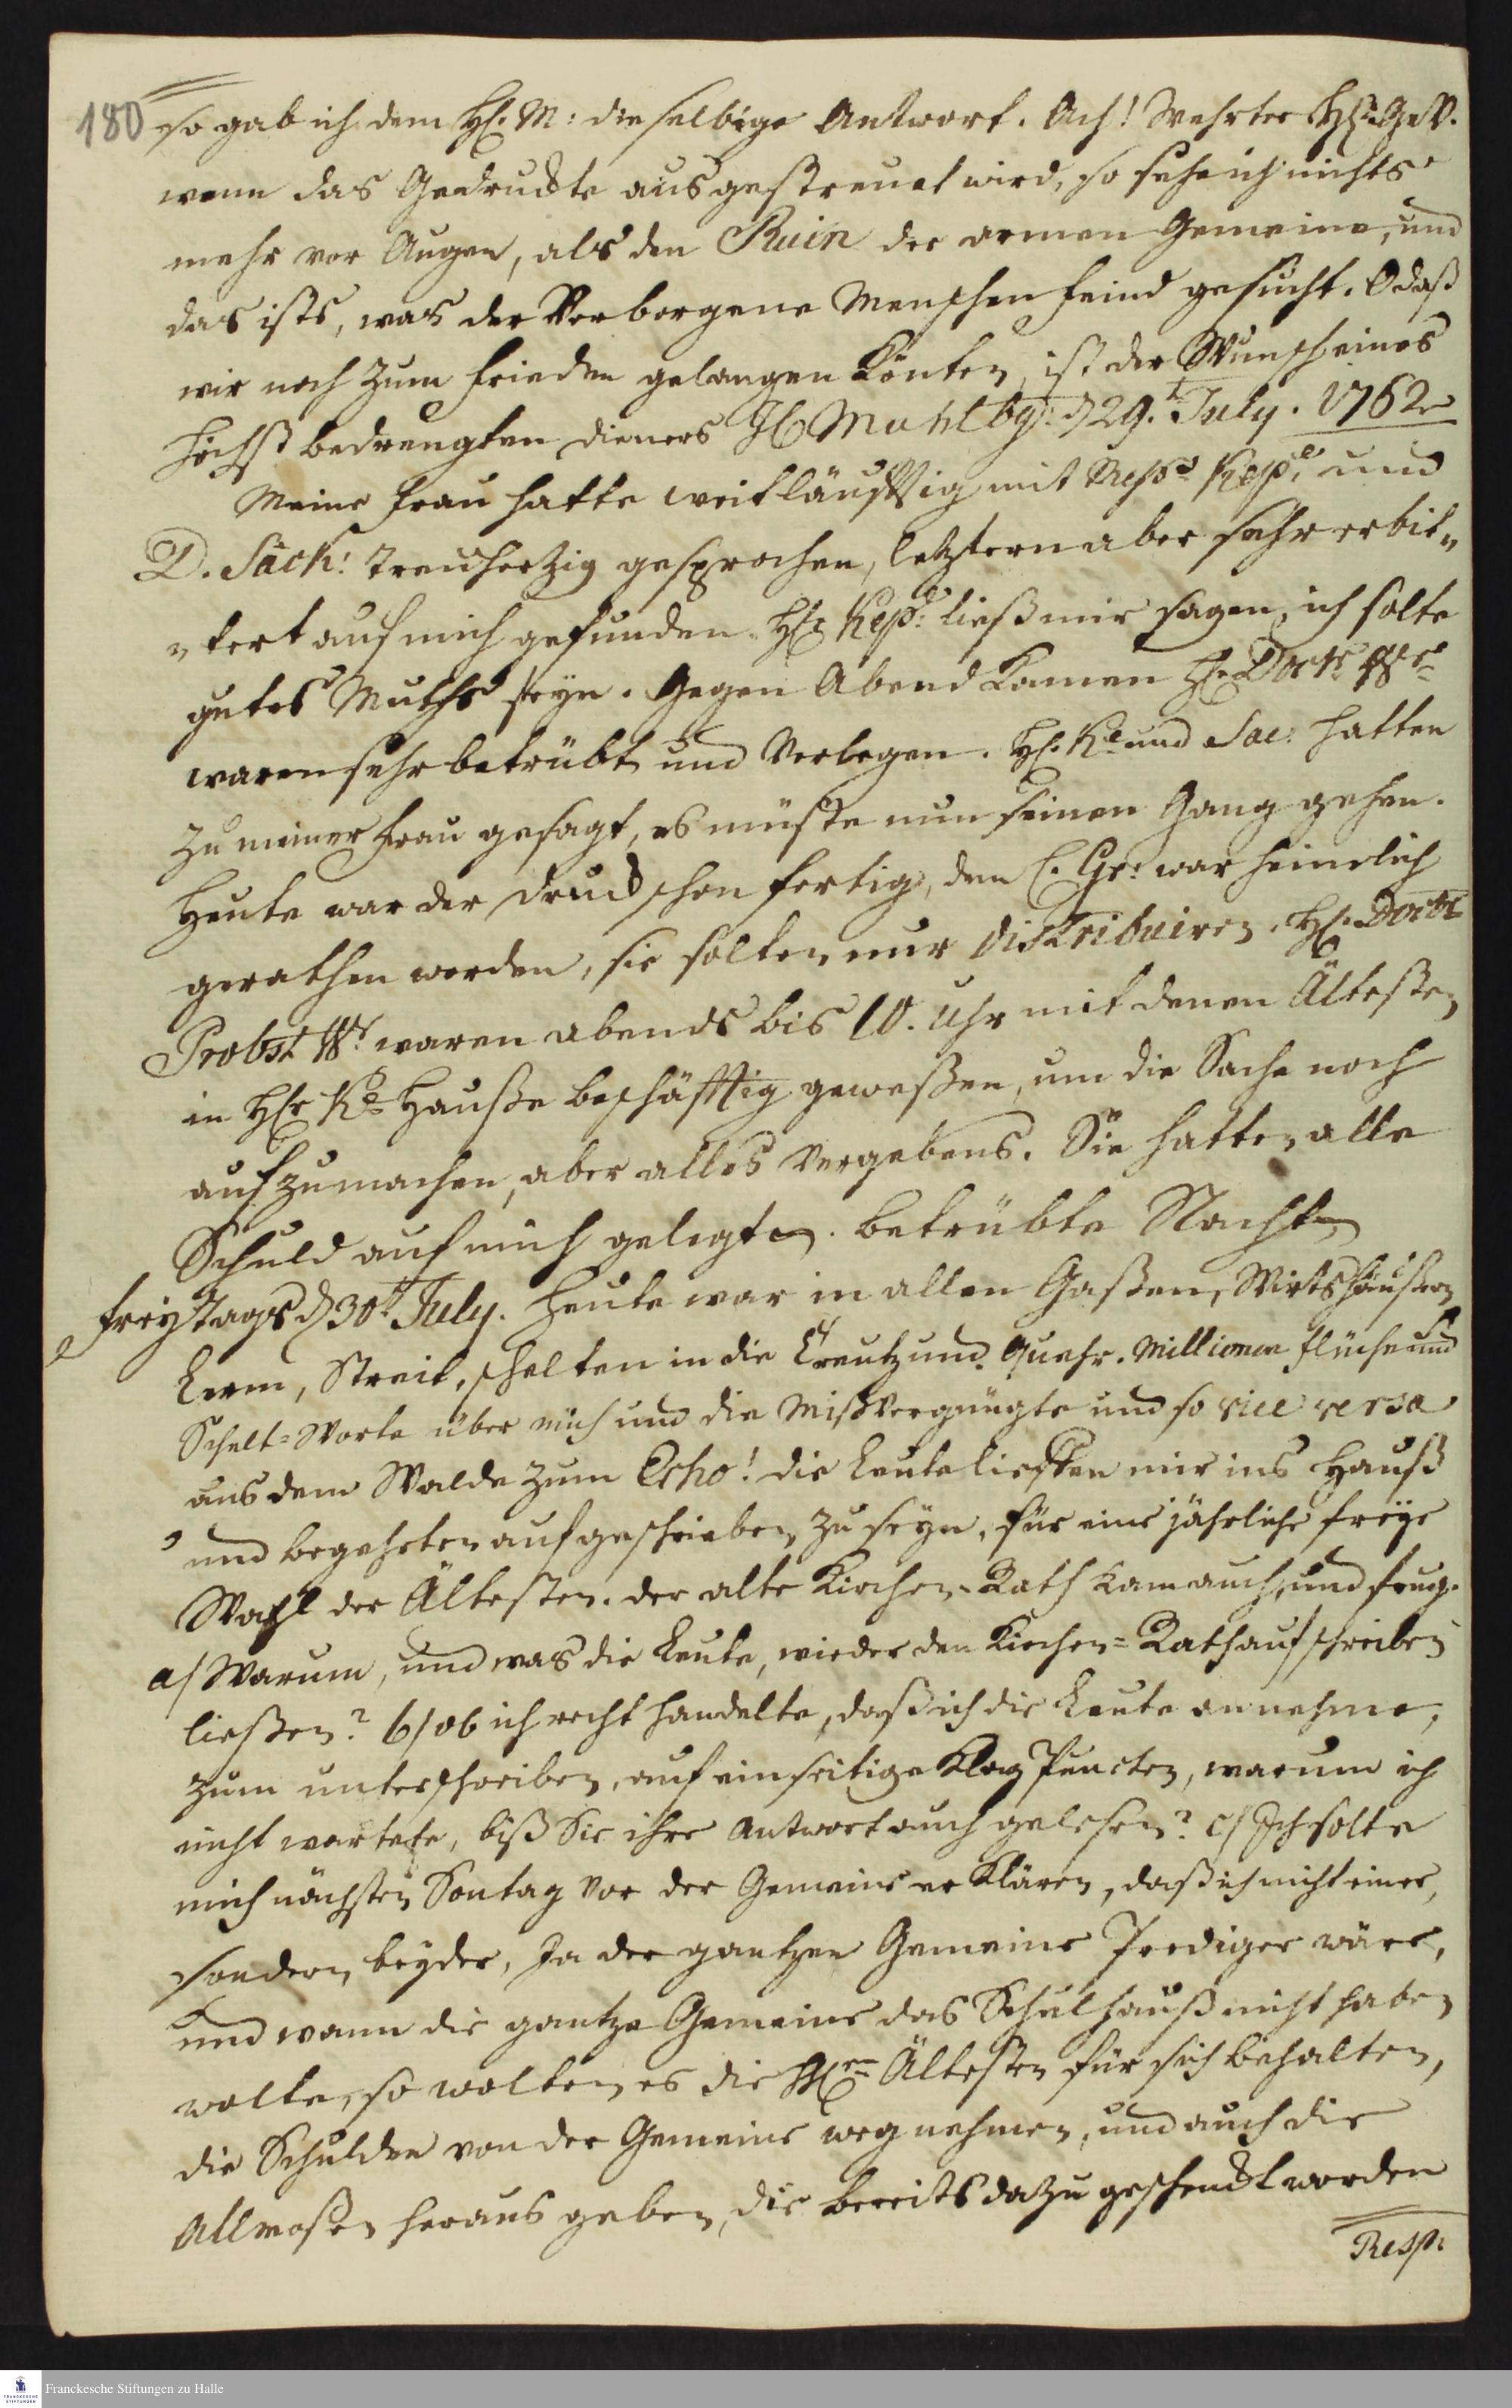 180 so gab ich dem H. M: die selbige Antwort. Ach! Wehrter H. GeV.
wenn das Gedruckte ausgestreuet wird, so sehe ich nichts
mehr vor Augen, als den Ruin der armen Gemeine, und
das ists, was der Verborgene Menschen feind gesucht. O daß
wir noch zum Frieden gelangen Könten, ist der Wunsch eines
höchst bedrengten dieners H Muhlbg: d 29.t July. 1762
Meine Frau hatte weitläufftig mit Messrs Kepl. und
D. Säck: treuherzig gesprochen, letztern aber sehr erbit„
„tert auf mich gefunden. Hr Kepl: ließ mir sagen, ich solte
gutes Muths seyn. Gegen Abend kamen H. Doctr Wr
waren sehr betrübt und Verlegen. H. Kl und Sae: hatten
zu meiner Frau gesagt, es müste nun seinen Gang gehen.
Heute war der Druck schon fertig, den C. Gr: war heimlich
gerathen worden, sie solten nur distribuiren. H. Doctr
Probst Wr. waren abends bis 10. Uhr mit denen Ältesten
in Hr Kls Hauße beschäfftig gewesen, um die Sache noch
auf zumachen, aber alles Vergebens. Sie hatten alle
Schuld auf mich gelegt. betrübte Nacht
Freytags d 30t July. Heute war in allen Gaßen, Wirtshäusern
Lerm, Streit, schelten in die Creutz und Quehr. Millionen flüche und
Schelt=Worte über mich und die Mißvergnügte und so vice versa
aus dem Walde zum Echo! die Leute lieffen mir ins Hauß
und begehrten aufgeschrieben zu seyn, für eine jährliche freye
Wahl der Ältesten. der alte Kirchen-Rath kam auch und frug.
a/ Warum, und was die Leute, wieder den Kirchen=Rath auf schreiben
ließen? b/ ob ich recht handelte, daß ich die Leute annehme,
zum unterschreiben, auf einseitige Klag Puncten, warum ich
nicht wartete, biß Sie ihre Antwort auch gelesen? c/ Ich solte
mich nächsten Sontag vor der Gemeine erklären, daß ich nicht einer,
sondern beyder, Ja der gantzen Gemeine Prediger wäre,
und wann die gantze Gemeine das Schulhauß nicht haben
wolte, so wolten es die HEn Ältesten für sich behalten,
die Schulden von der Gemeine weg nehmen, und auch die
Allmosen heraus geben, die bereits dazu geschenckt worden
Resp:
Franckesche Stiftungen zu Halle